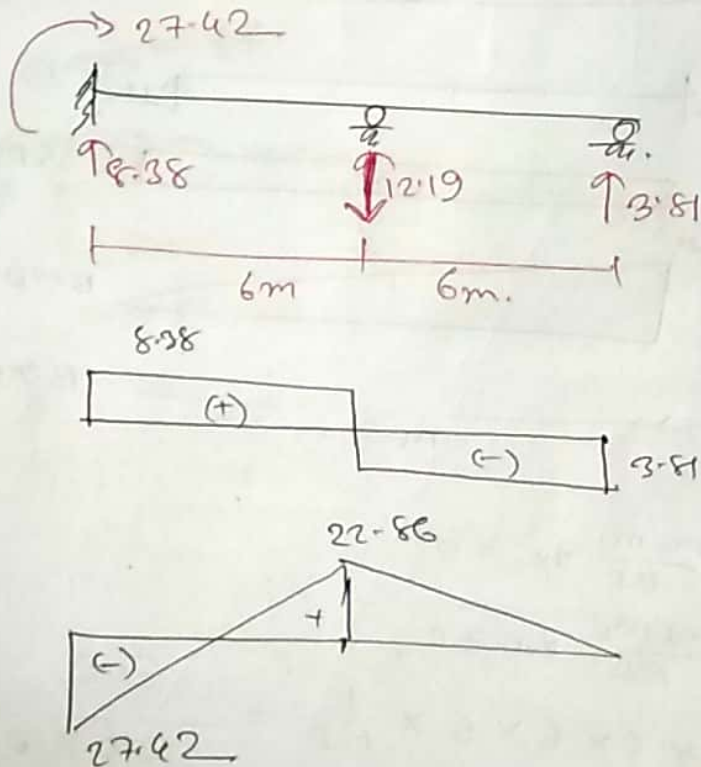 27.42
8.38
12.19
3.81
6m
6m.
8.38
(+)
(-)
3.81
22-86
+
(-)
27.42